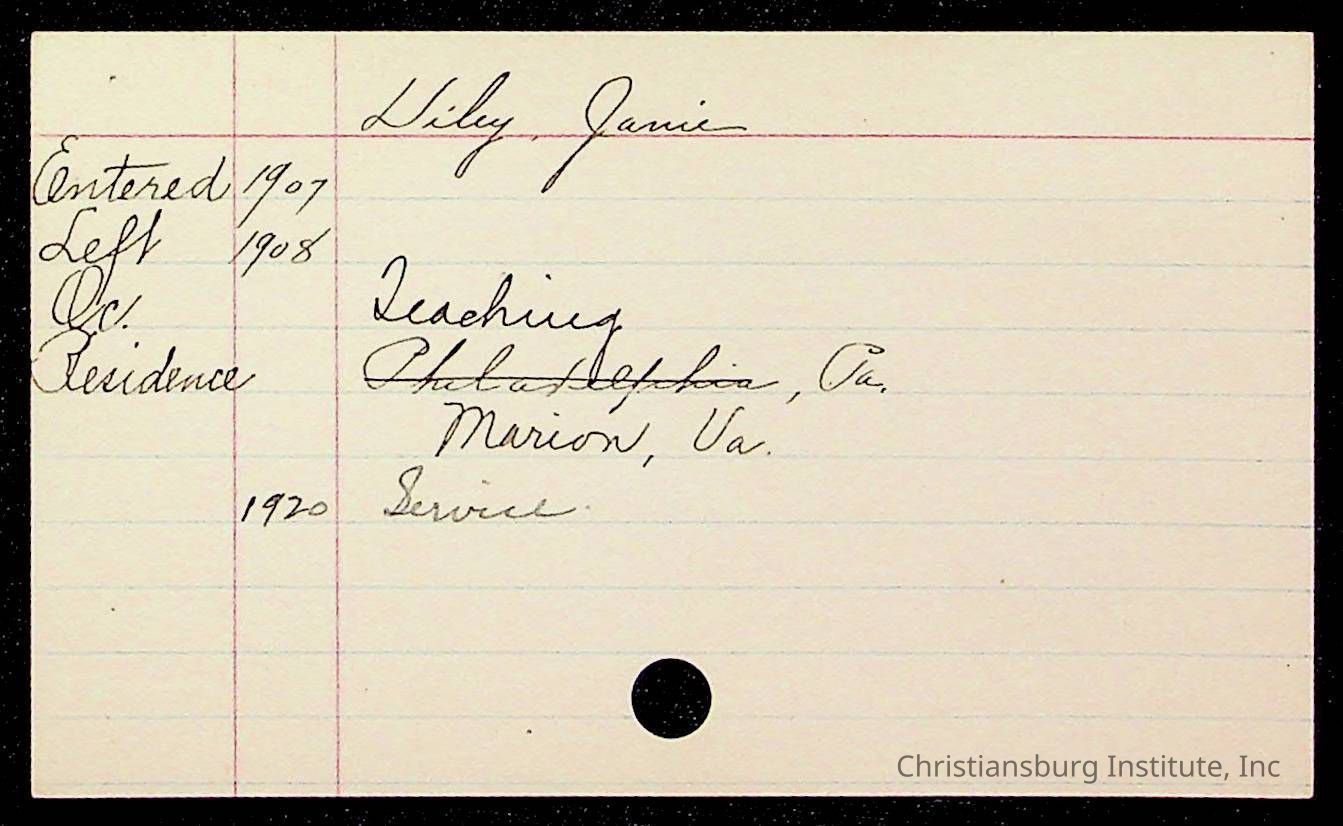 Wiley, Janie
Entered 1907
Left 1908
Oc. Teaching
Residence Philadelphia, Pa.
Marion, Va.
1920 Service
Christiansburg Institute, Inc